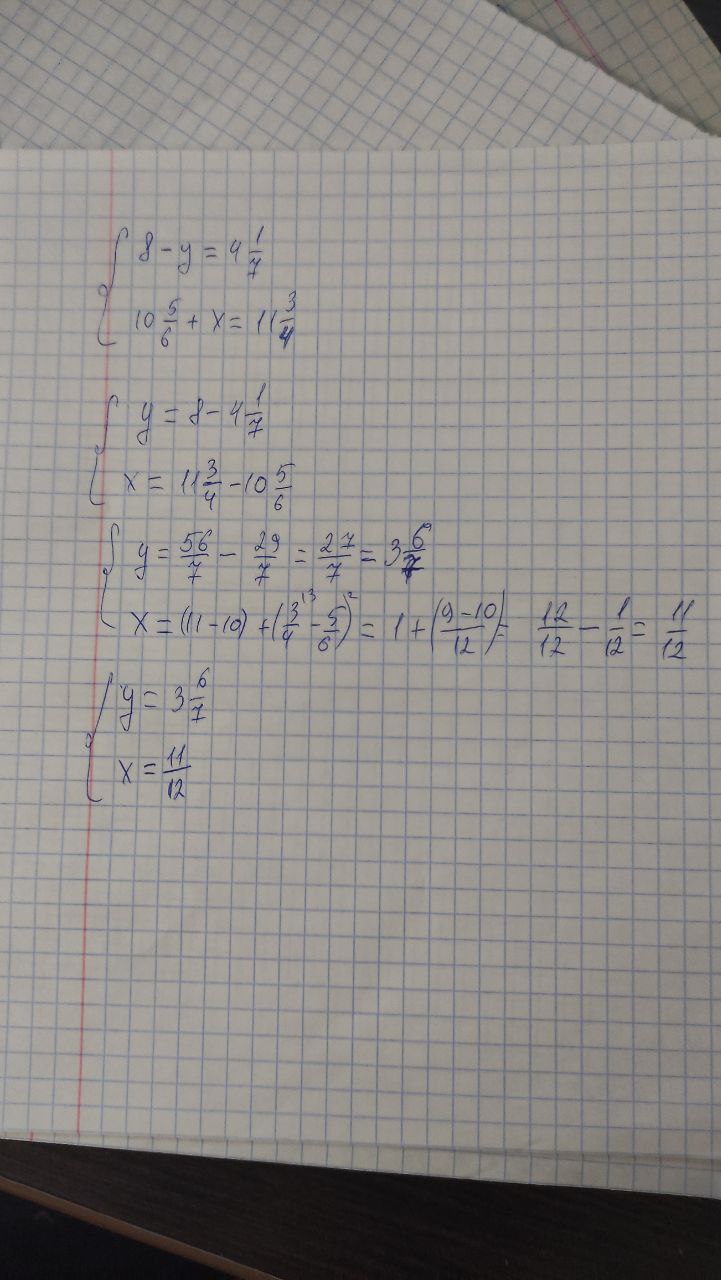 8 - y = 4 1/7
10 5/6 + x = 11 3/4
y = 8 - 4 1/7
x = 11 3/4 - 10 5/6
y = 56/7 - 29/7 = 27/7 = 3 6/7
x = (11 - 10) + (3/4^{13} - 5/6)^2 = 1 + (9 - 10/12) = 12/12 - 1/12 = 11/12
y = 3 6/7
x = 11/12